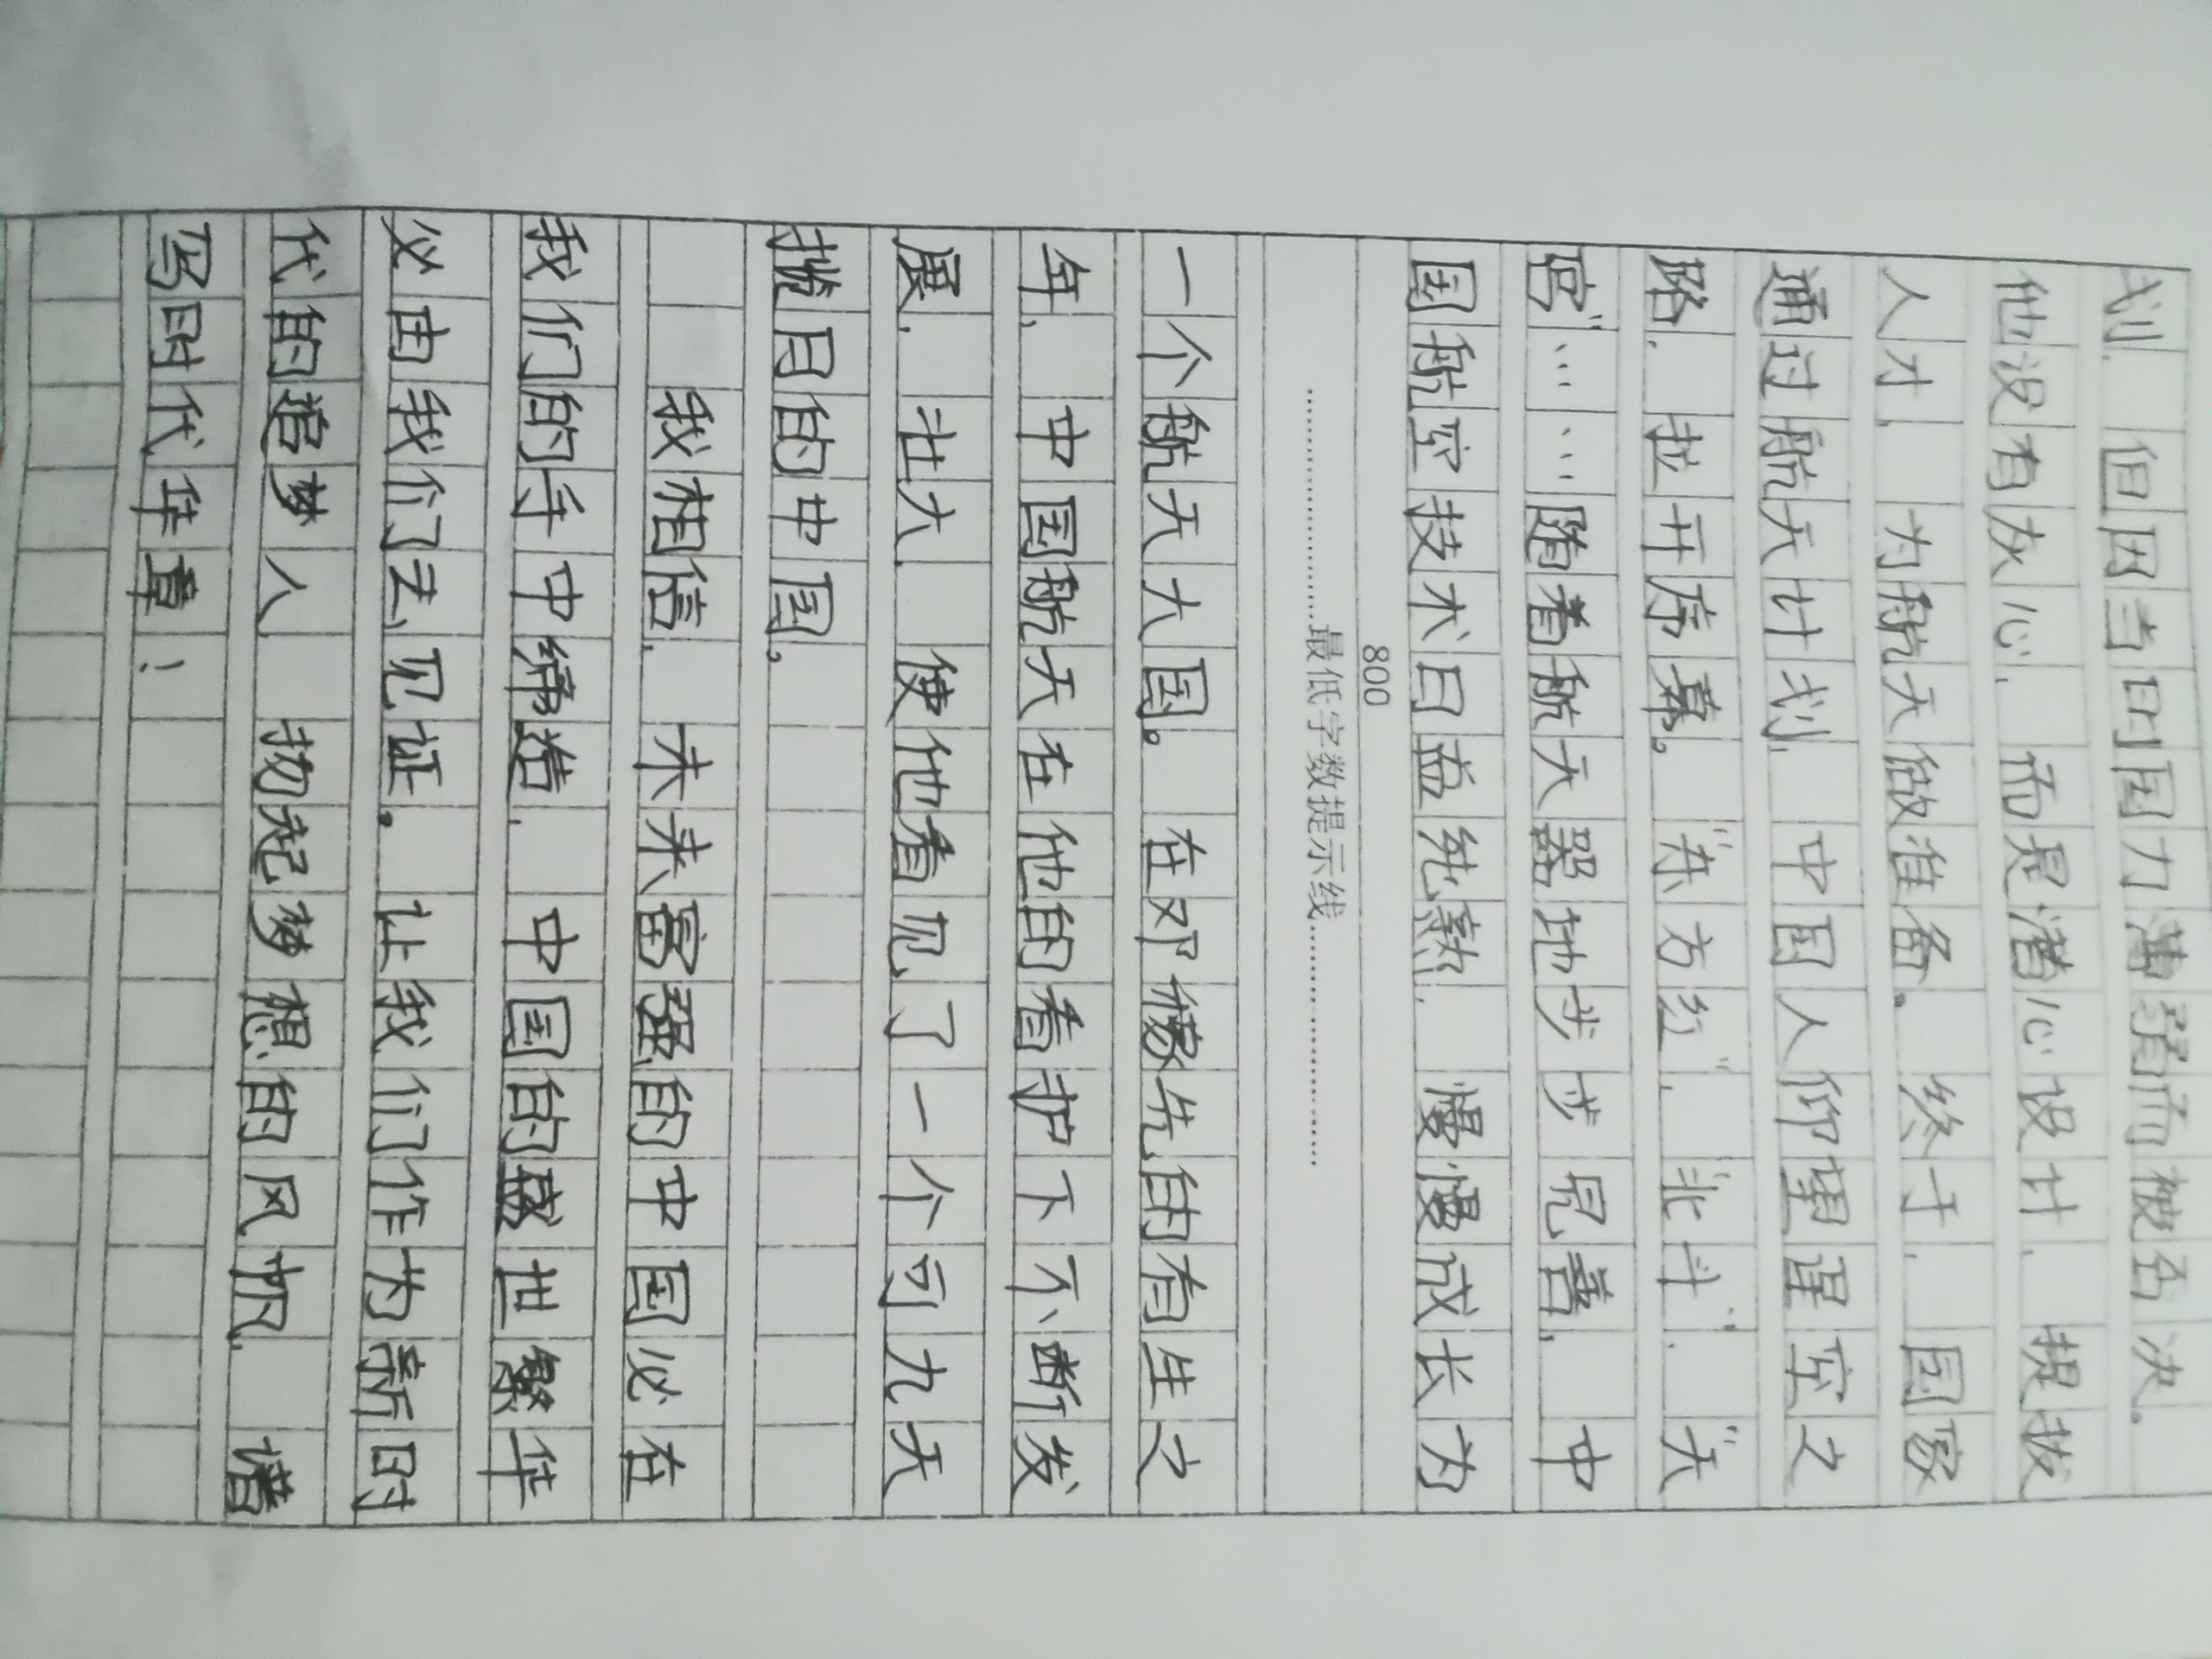 划，但因当时国力薄弱而被否决。
他没有灰心，而是潜心设计，提拔
人才，为航天做准备。终于，国家
通过航天计划，中国人仰望星空之
路，拉开序幕。“东方红”，“北斗”，“天
宫”……随着航天器地步步完善，中
国航空技术日益纯熟，慢慢成长为
800
最低字数提示线
一个航天大国。在邓稼先的有生之
年，中国航天在他的看护下不断发
展，壮大，使他看见了一个可九天
揽月的中国。
我相信，未来富强的中国必在
我们的手中缔造，中国的盛世繁华
必由我们去见证。让我们作为新时
代的追梦人，扬起梦想的风帆，谱
写时代华章！